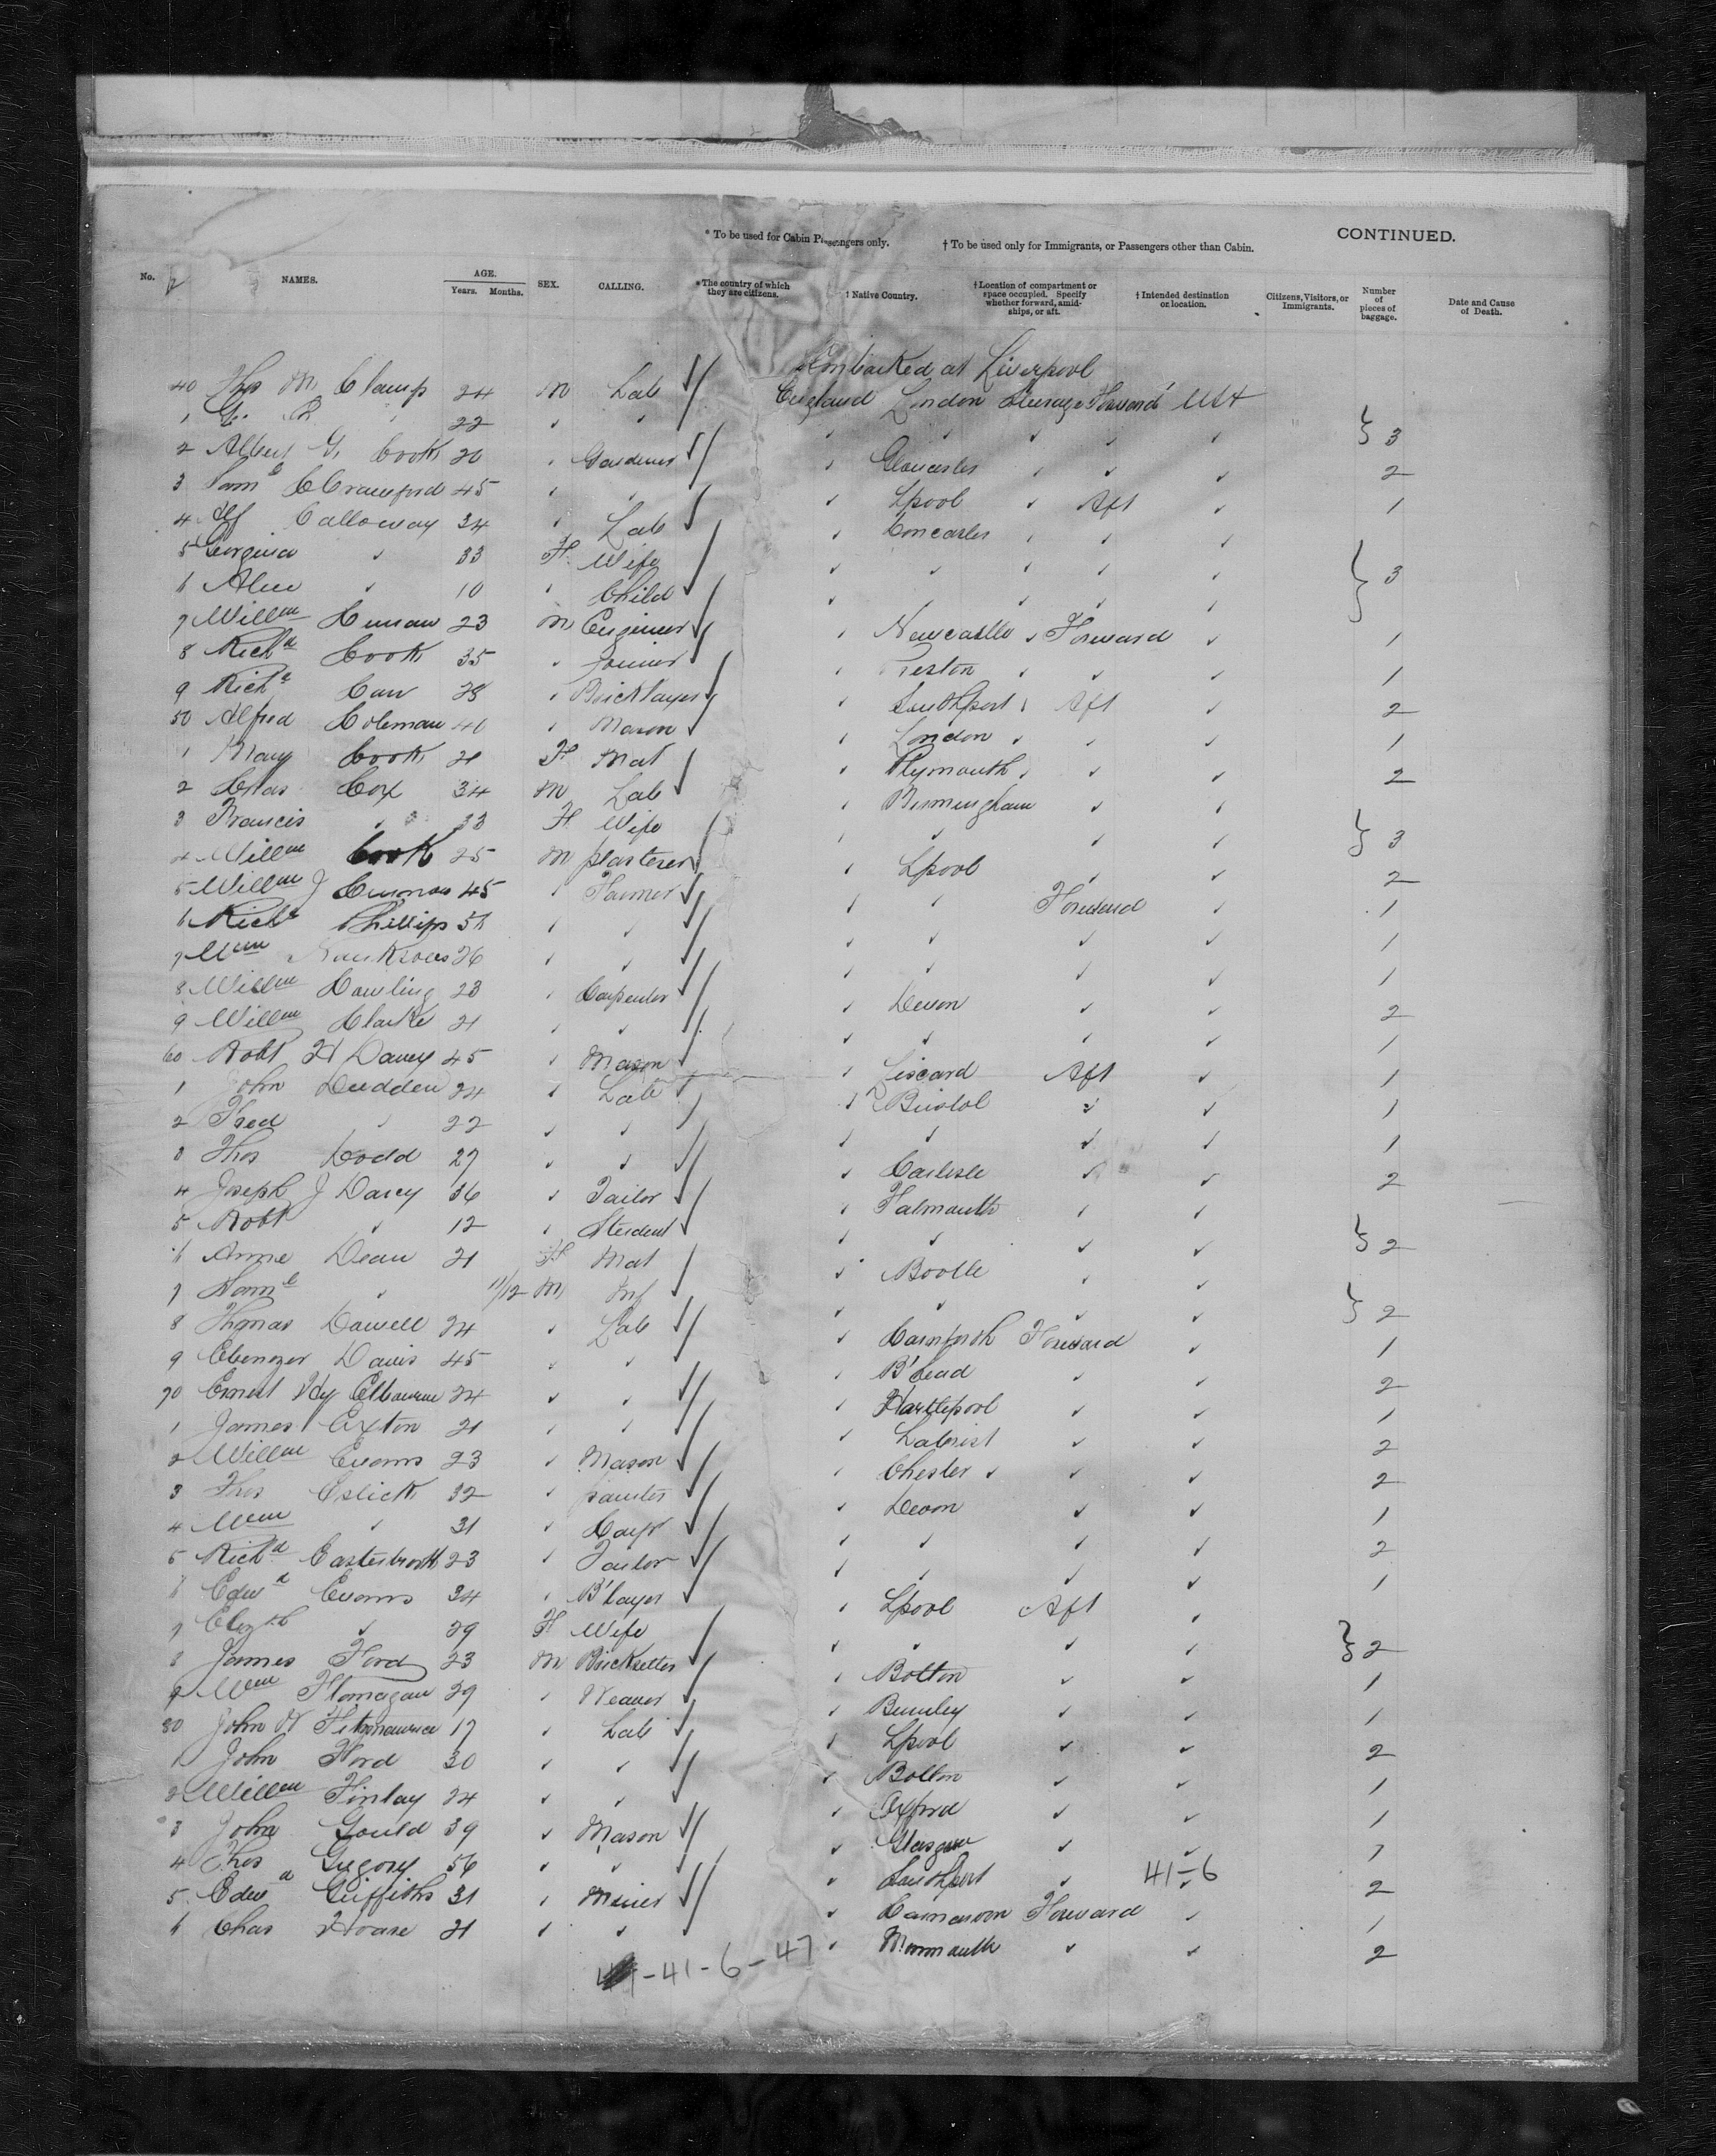 * To be used for Cabin Passengers only. † To be used only for Immigrants, or Passengers other than Cabin. CONTINUED.
No. NAMES. AGE. Years. Months. SEX. CALLING. * The country of which they are citizens. † Native Country. † Location of compartment or space occupied. Specify whether forward, amidships, or aft. † Intended destination or location. Citizens, Visitors, or Immigrants. Number of pieces of baggage. Date and Cause of Death.
Embarked at Liverpool
40 Thos M, Clamp 24 M Lab England London Steerage Forward USA
1 G. R 22 3
2 Albert G. Cook 20 Gardener Gloucester 2
3 Saml C Crawford 45 Lpool Aft 1
4 Alf Calloway 34 Lab
5 Georgina 33 F Wife 3
6 Alice 10 Child
7 Willm 23 M Engineer Newcastle Forward 1
8 Richd Cook 35 Joiner Preston 1
9 Richd 28 Bricklayer Southport Aft 2
50 Alfred Coleman 40 Mason London 1
1 Mary Cook 21 F Mat Plymouth 2
2 Chas Cox 34 M Lab Birmingham
3 Francis 33 F Wife 3
4 Willm Cook 25 M plasterer Lpool 2
5 Willm J 45 Farmer Forward 1
6 Richd Phillips 1
7 Wm 26 1
8 Willm 23 Carpenter Devon 2
9 Willm Clarke 21 1
60 Robt H Davey 45 Mason Liscard Aft 1
1 John Dudden 24 Lab Bristol 1
2 Fred 22 1
3 Thos Dodd 27 Carlisle 2
4 Joseph J Darcy 36 Tailor Falmouth
5 Robt 12 Student 2
6 Annie Dean 21 F Mat Bootle
7 Saml 11/12 M Inf 2
8 Thomas Dowell 24 Lab Carnforth Forward 1
9 Ebenezer Davis 45 B'head 2
70 Ernest Hy Elbourne 24 Hartlepool 1
1 James Exton 21 2
2 Willm Evans 23 Mason Chester 2
3 Thos Eslick 32 painter Devon 1
4 Wm 31 Carpr 2
5 Richd 23 Tailor 1
6 Edwd Evans 34 B'layer Lpool Aft
7 Elizth 29 F Wife 2
8 James Ford 23 M Bricksetter Bolton 1
9 Wm Flanagan 29 Weaver Burnley 1
80 John W Fitzmaurice 17 Lab Lpool 2
1 John Ford 30 Bolton 1
2 Willm Finlay 24 Oxford 1
3 John Gould 39 Mason Glasgow 1
4 Thos Gregory 56 Southport 41-6 2
5 Edwd Griffiths 31 Miner Carnarvon Forward 1
6 Chas Hoare 21 Monmouth 2
-41-6-47